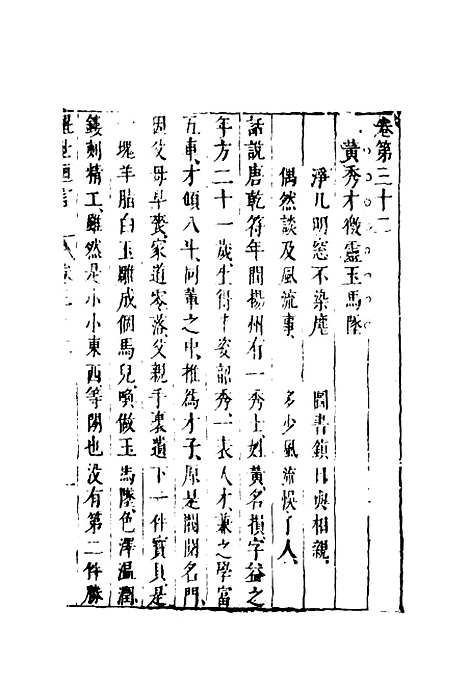 卷第三十二
黃秀才徼靈玉馬墜
淨几明窓不染塵　圖書鎮日與相親
偶然談及風流事　多少風流悞了人
話說唐乾符年間揚州有一秀士姓黃名損字益之
年方二十一歲生得丰姿韶秀一表人才兼之學富
五車才傾八斗同輩之中推為才子原是閥閱名門
因父母早喪家道零落父親手裏遺下一件寶貝是
一塊羊脂白玉雕成個馬兒喚做玉馬墜色澤溫潤
鏤刻精工雖然是小小東西等閒也沒有第二件勝
醒世恒言